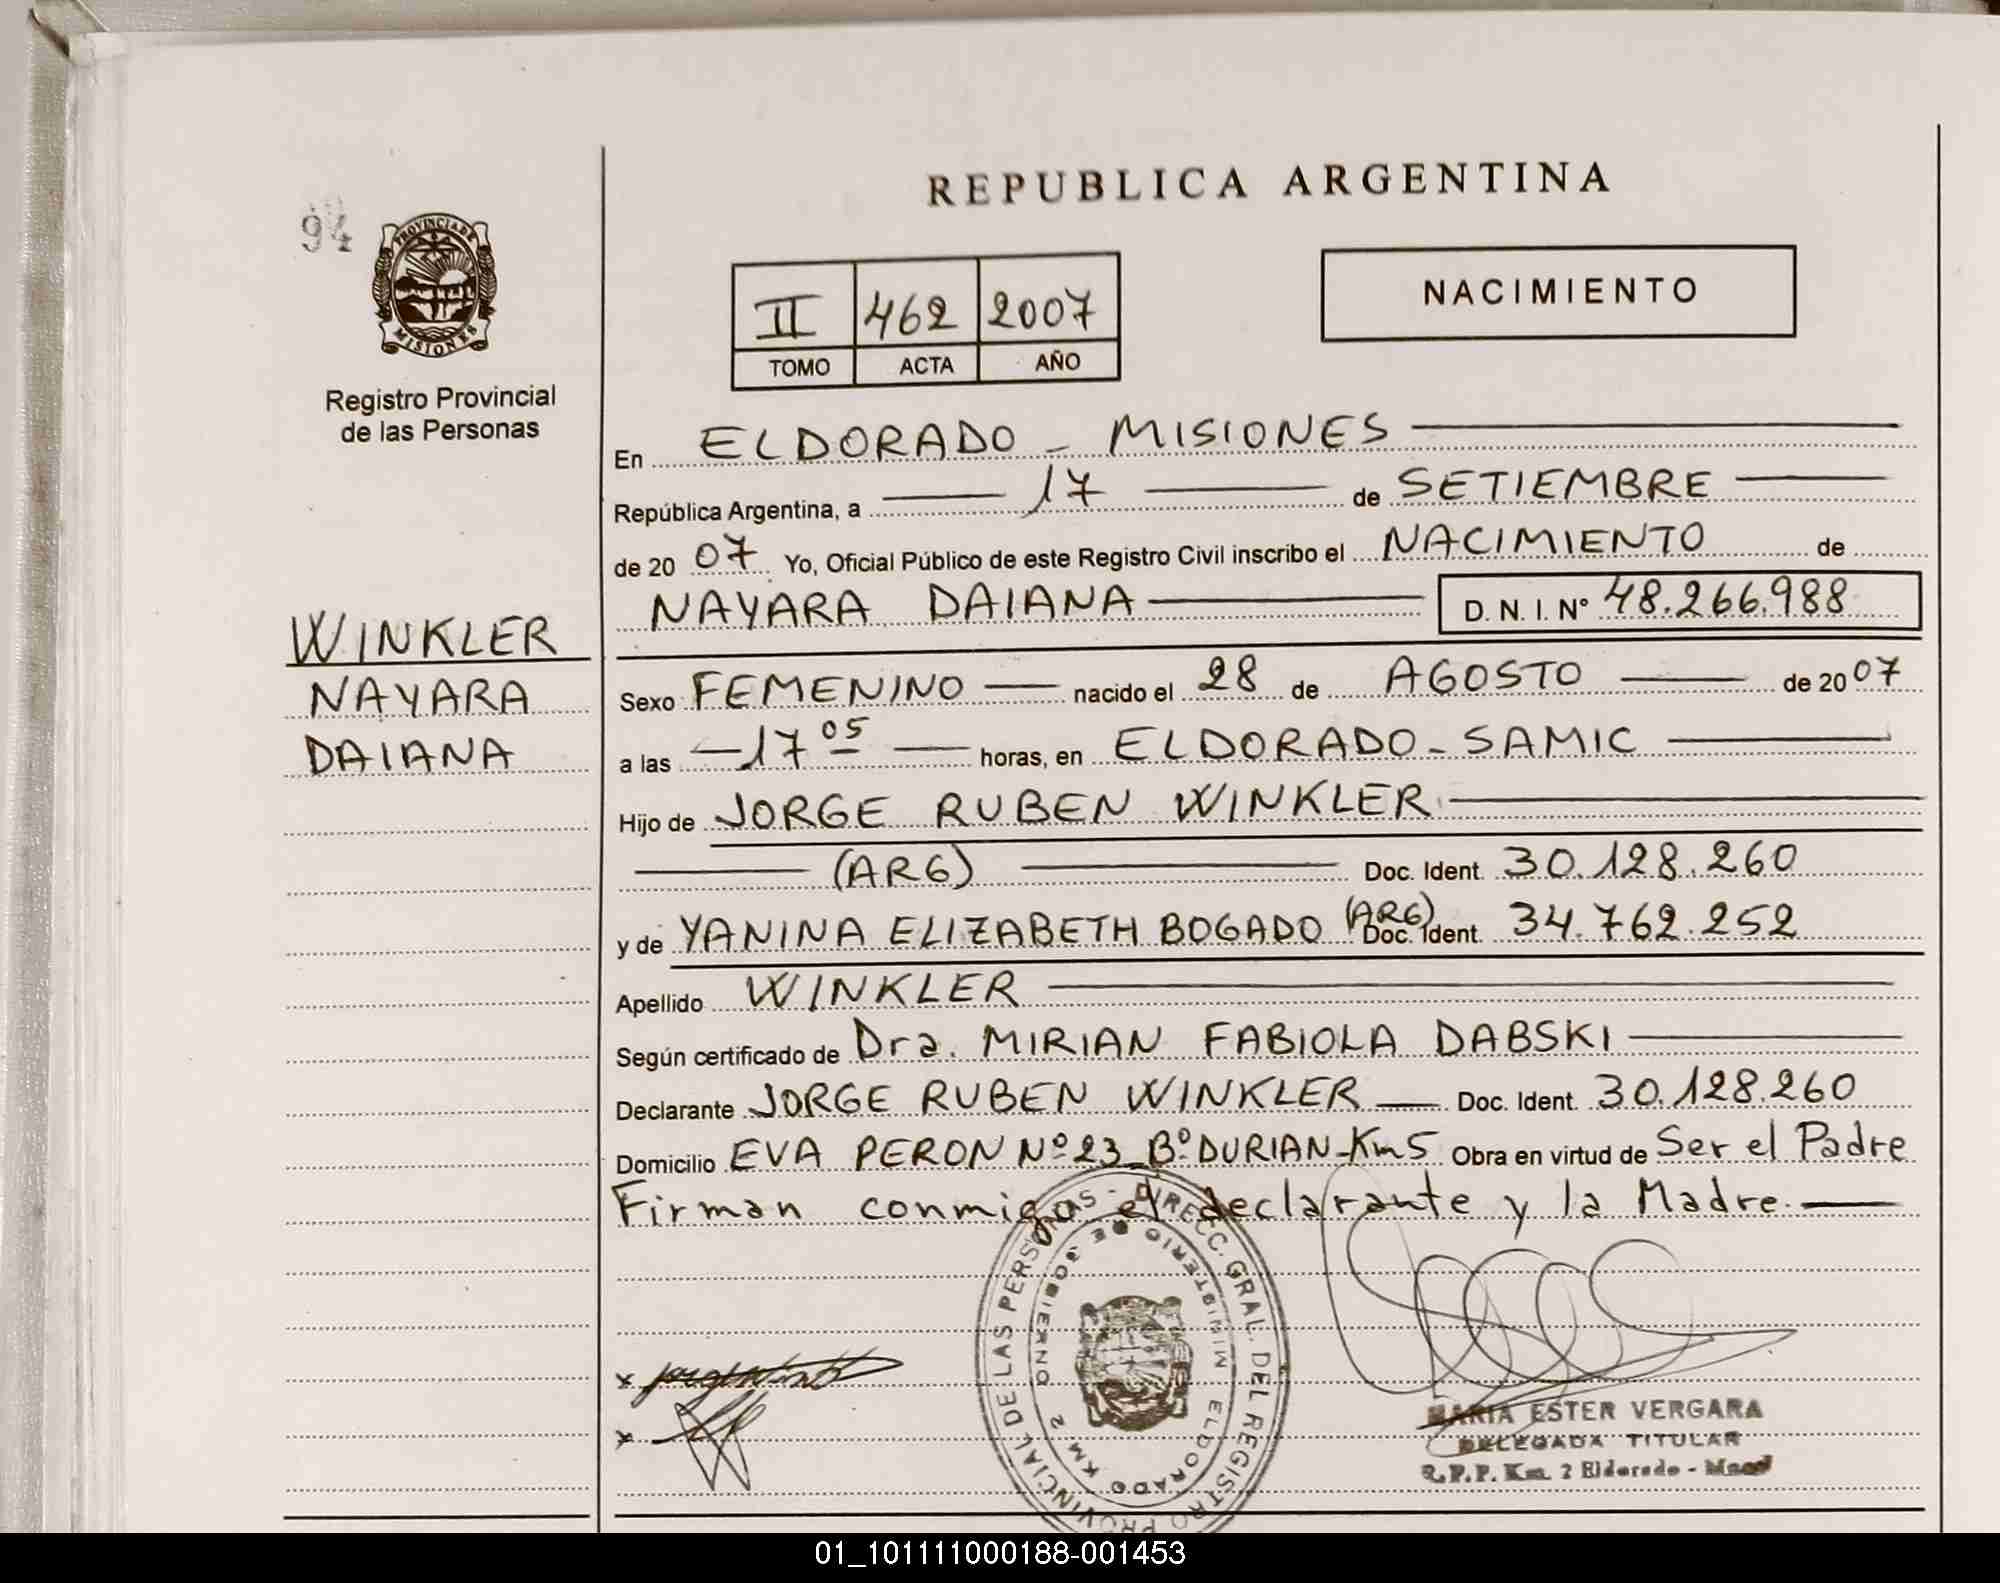 REPUBLICA ARGENTINA
94
PROVINCIA DE
MISIONES
Registro Provincial
de las Personas
II 462 2007
TOMO ACTA AÑO
NACIMIENTO
En ELDORADO - MISIONES
República Argentina, a 17 de SETIEMBRE
de 2007 Yo, Oficial Público de este Registro Civil inscribo el NACIMIENTO de
NAYARA DAIANA D. N. I. N° 48.266.988
WINKLER
NAYARA
DAIANA
Sexo FEMENINO nacido el 28 de AGOSTO de 2007
a las 17 05 horas, en ELDORADO - SAMIC
Hijo de JORGE RUBEN WINKLER
(ARG) Doc. Ident. 30.128.260
y de YANINA ELIZABETH BOGADO (ARG) Doc. Ident. 34.762.252
Apellido WINKLER
Según certificado de Dra. MIRIAN FABIOLA DABSKI
Declarante JORGE RUBEN WINKLER Doc. Ident. 30.128.260
Domicilio EVA PERON Nº 23 Bº DURIAN - Km 5 Obra en virtud de Ser el Padre
Firman conmigo el declarante y la Madre.
DIRECC. GRAL. DEL REGISTRO PROVINCIAL DE LAS PERSONAS -
MINISTERIO DE GOBIERNO
ELDORADO KM 2
x
x
MARIA ESTER VERGARA
DELEGADA TITULAR
R.P.P. Km. 2 Eldorado -
01_101111000188-001453